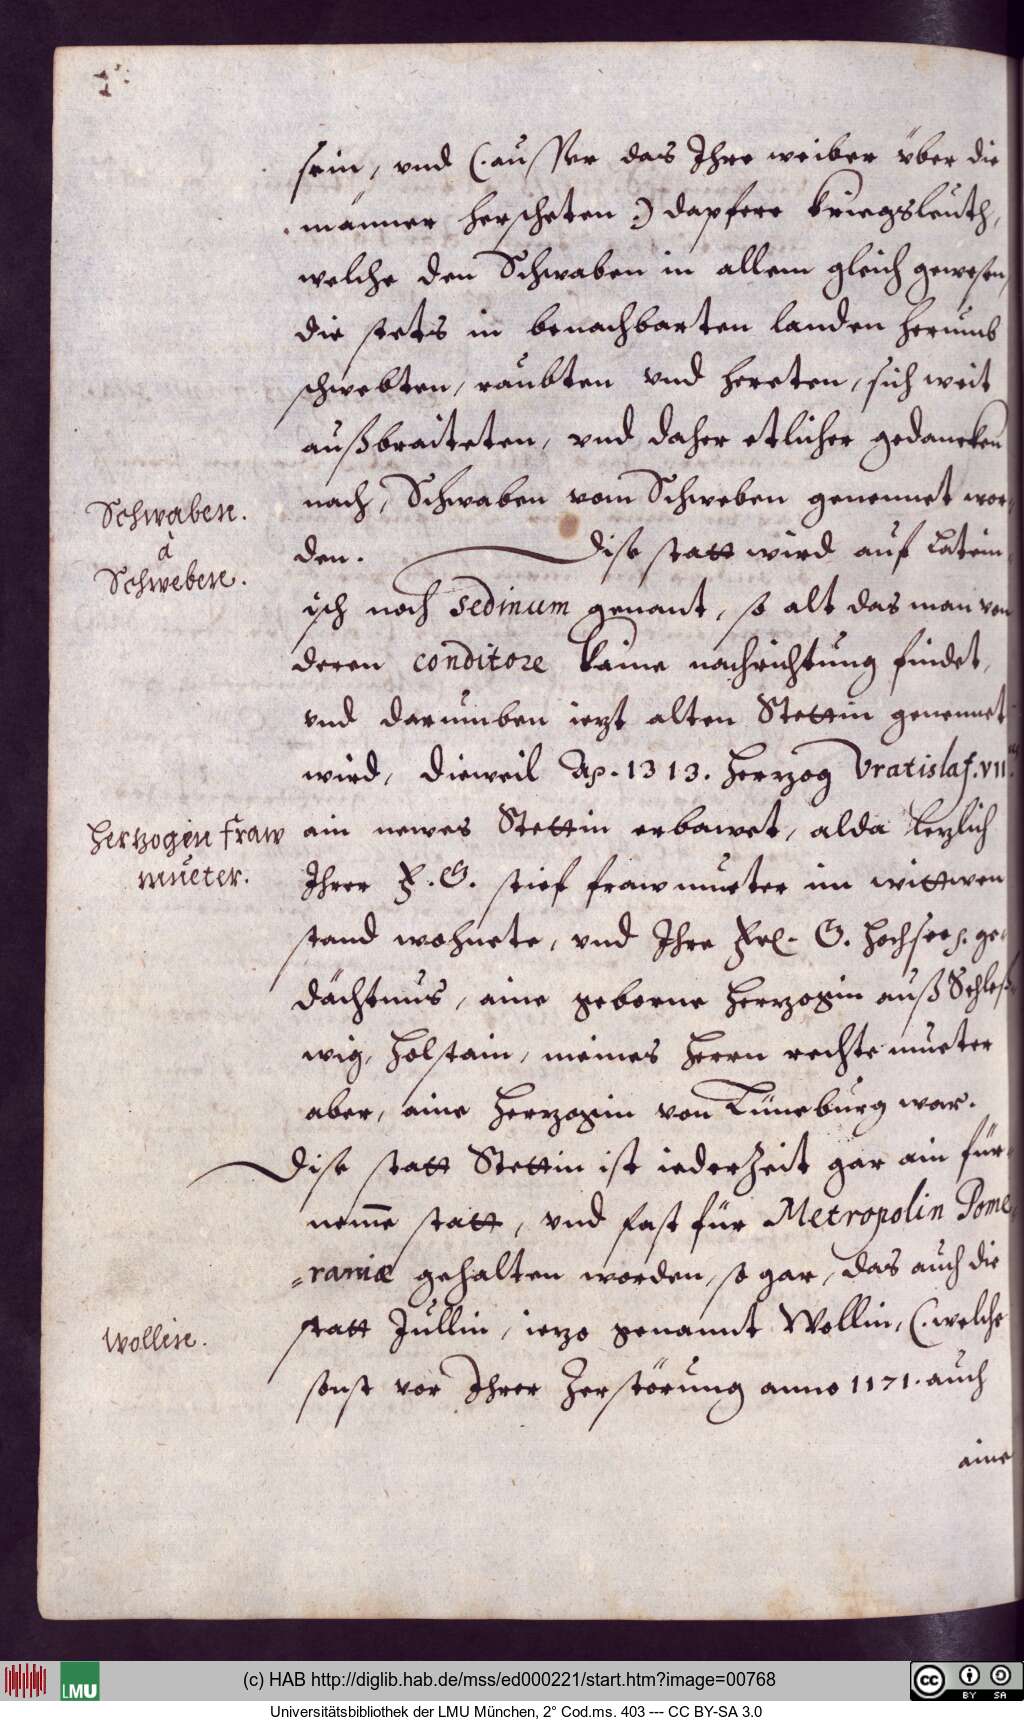 sein, vnd (: ausser das Ihre weiber über die
männer herscheten :) dapfere kriegsleüth,
welche den Schwaben in allem gleich gewesen,
die stets in benachbarten landen herumb
schwebten, raubten vnd hereten, sich weit
außbraiteten, vnd daher etlicher gedancken
nach, Schwaben vom Schweben genennet wor-
Schwaben.
à
Schweben.
den. Dise statt wird auf Latein-
isch noch Sedinum genant, so alt das man von
deren conditore kaine nachrichtung findet,
vnd darumben iezt alten Stettin genennet
wird, dieweil Ao. 1313. Herzog Vratislaf. VII.
Herzogin fraw
mueter.
ain newes Stettin erbawet, alda lezlich
Ihrer F. G. stief frawmueter im wittwen
stand wohnete, vnd Ihre Frl. G. hochseel. ge-
dächtnus, aine geborne Herzogin auß Schleß-
wig, Holstain, meines Herrn rechte mueter
aber, aine Herzogin von Lüneburg war.
Dise statt Stettin ist iederzeit gar ain für-
neme statt, vnd fast für Metropolin Pome-
raniæ gehalten worden, so gar, das auch die
Wollin.
statt Jullin, iezo genannt Wollin, (: welche
sonst vor Ihrer Zerstörung anno 1171. auch
aine
(c) HAB http://diglib.hab.de/mss/ed000221/start.htm?image=00768
LMU
BY SA
Universitätsbibliothek der LMU München, 2° Cod.ms. 403 --- CC BY-SA 3.0